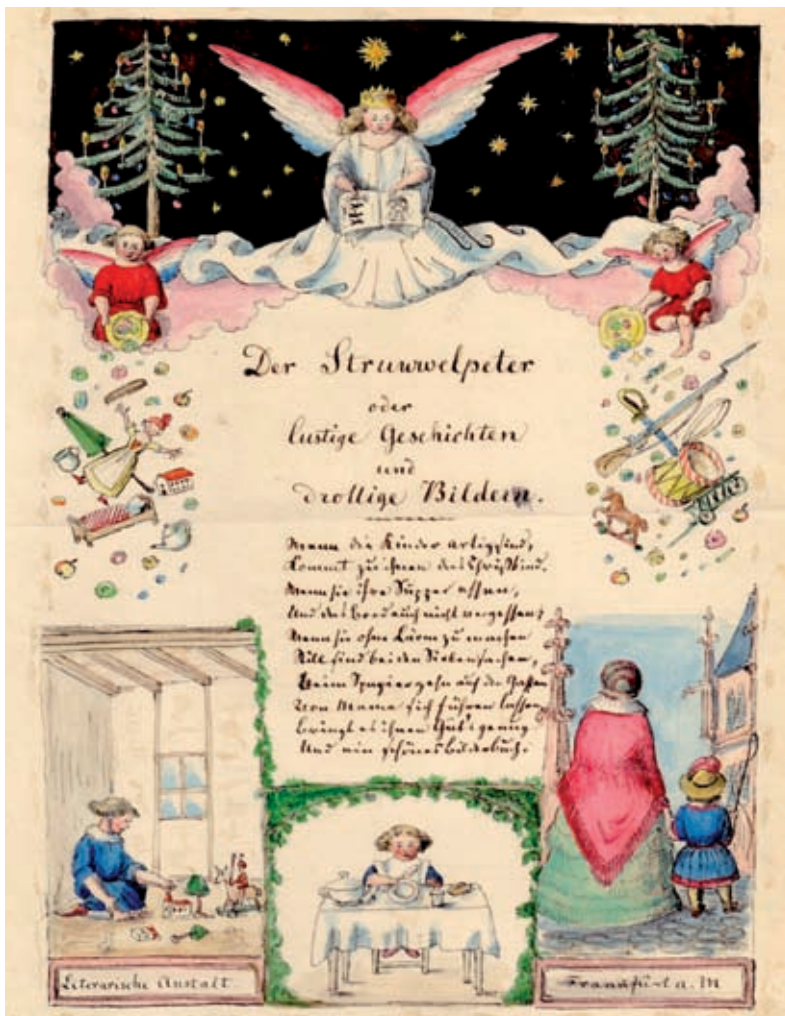 Der Struwwelpeter
oder
lustige Geschichten
und
drollige Bildern.
Wenn die Kinder artig sind,
Kommt zu ihnen das Christkind.
Wenn sie ihre Suppe essen,
Und das Brod auch nicht vergessen,
Wenn sie ohne Lärm zu machen
Still sind bei den Siebensachen,
Beim Spaziergehn auf den Gassen
Von Mama sich führen lassen,
Bringt es ihnen Gut's genug
Und ein schönes Bilderbuch.
Literarische Anstalt
Frankfurt a. M